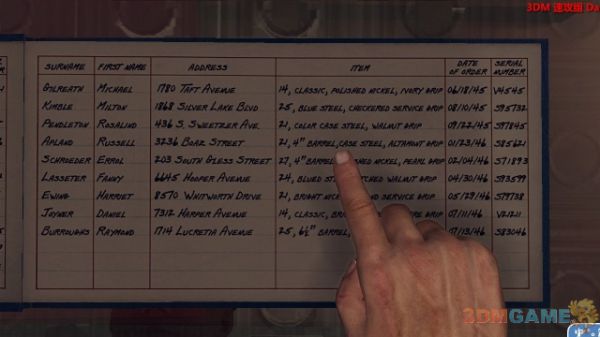 3DM 速攻组 Da
SURNAME FIRST NAME ADDRESS ITEM DATE OF ORDER SERIAL NUMBER
GILREATH MICHAEL 1780 TAFT AVENUE 14, CLASSIC, POLISHED NICKEL, IVORY GRIP 06/18/45 V4545
KIMBLE MILTON 1868 SILVER LAKE BLVD 25, BLUE STEEL, CHECKERED SERVICE GRIP 08/23/45 S95732
PENDLETON ROSALIND 436 S. SWEETZER AVE. 21, COLOR CASE STEEL, WALNUT GRIP 09/22/45 S97845
APLAND RUSSELL 3236 BOAZ STREET 21, 4" BARREL, CASE STEEL, ALTAMONT GRIP 01/23/46 S85621
SCHROEDER ERROL 203 SOUTH GLESS STREET 27, 4" BARREL, NICKEL, PEARL GRIP 02/04/46 S71893
LASSETER FANNY 6645 HOOPER AVENUE 24, BLUED WALNUT GRIP 04/30/46 S93599
EWING HARRIET 8570 WHITWORTH DRIVE 21, BRIGHT SERVICE GRIP 05/29/46 S79738
JOYNER DANIEL 7312 HARPER AVENUE 14, CLASSIC, GRIP 07/11/46 V21211
BURROUGHS RAYMOND 1714 LUCRETIA AVENUE 25, 6½" BARREL, GRIP 07/13/46 S83046
3DMGAME